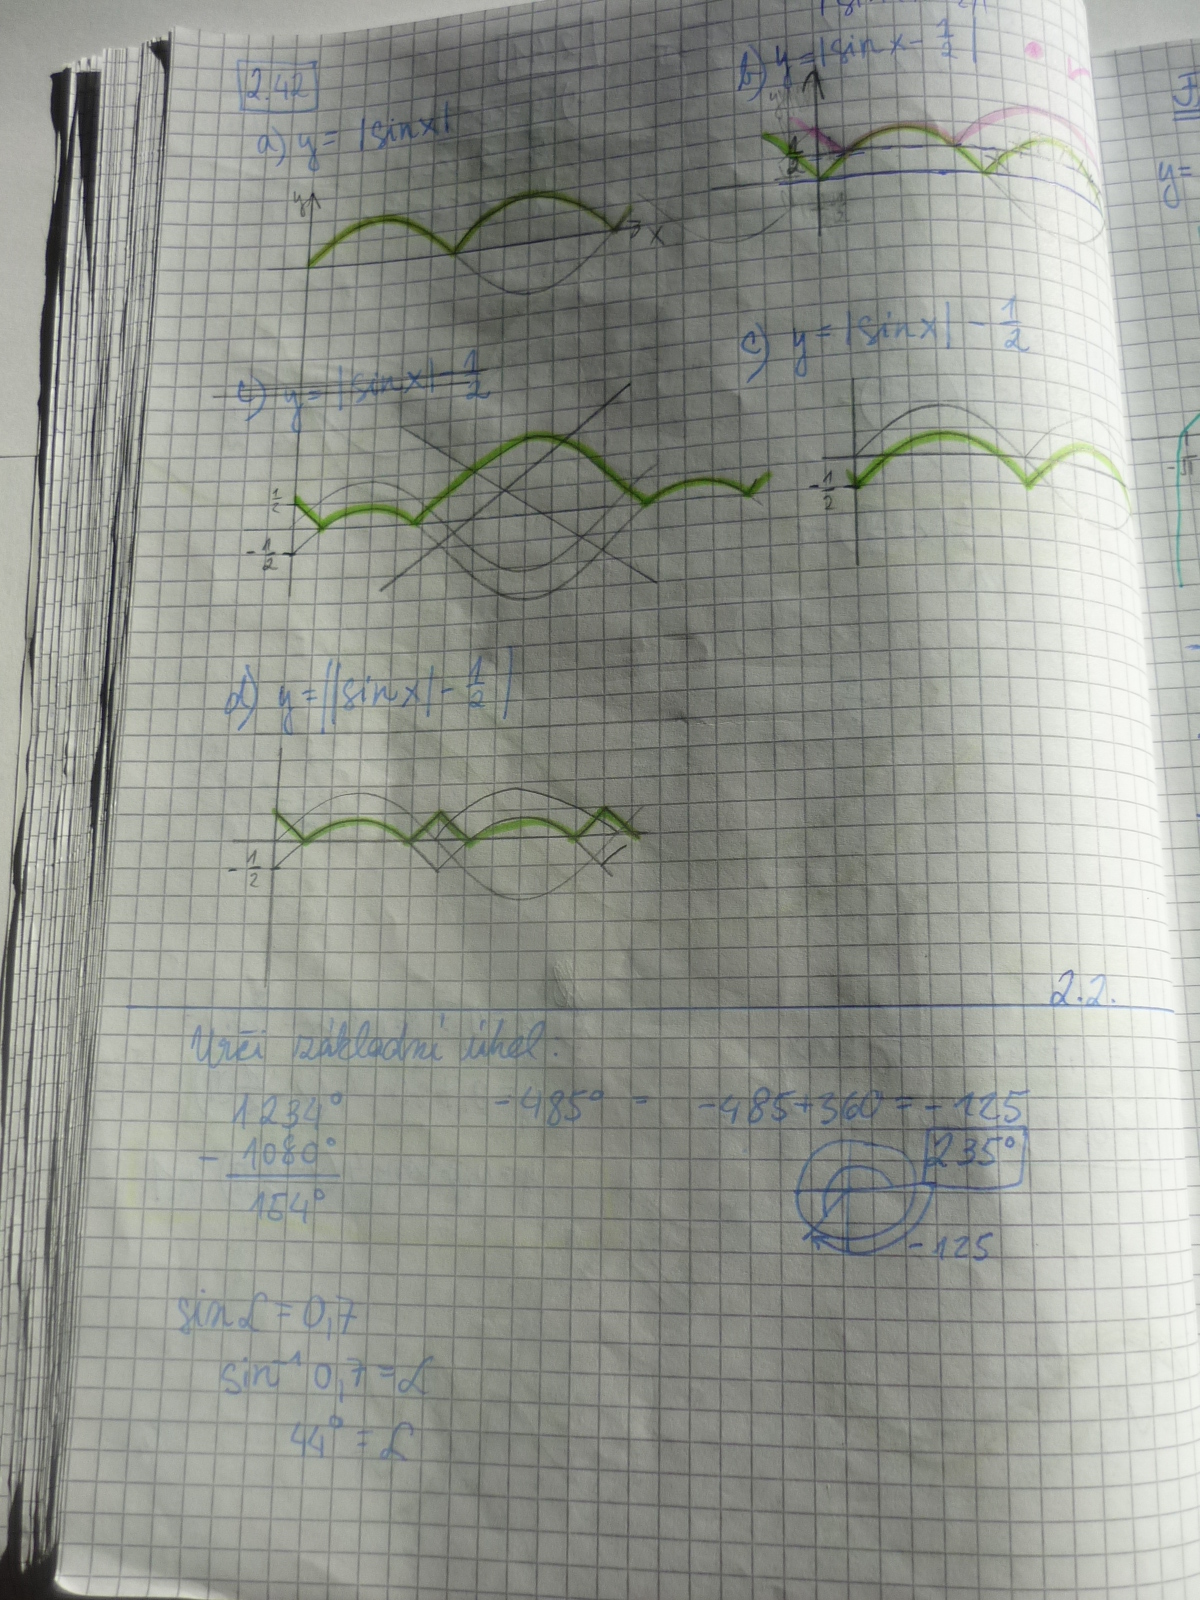 2.42
a) y = |sin x|
y
x
b) y = |sin x - 1/2|
1/2
c) y = |sin x| - 1/2
1/2
- 1/2
c) y = |sin x| - 1/2
- 1/2
d) y = ||sin x| - 1/2|
- 1/2
2.2.
Urči základní úhel:
1234°
- 1080°
154°
-485° = -485+360 = -125
235°
-125
sin α = 0,7
sin⁻¹ 0,7 = α
44° = α
y=